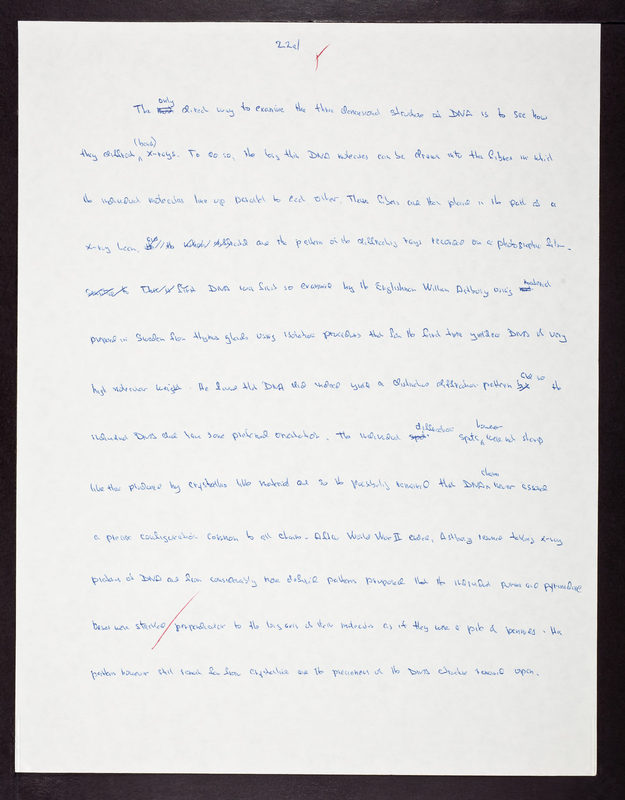 22a/
The only direct way to examine the three dimensional structure of DNA is to see how
they diffract (bend) x-rays. To do so, the long thin DNA molecules can be drawn into thin fibres in which
the individual molecules line up parallel to each other. These fibers are then placed in the path of a
x-ray beam, and the pattern of the diffracting rays recorded on a photographic film.
DNA was first so examined by the Englishman William Astbury using material
prepared in Sweden from thymus glands using isolation procedures that for the first time yielded DNA of very
high molecular weight. He found that DNA did indeed yield a distinctive diffraction pattern and so the
individual DNAs did have some preferred orientation. The individual diffraction spots, however were not sharp
like those produced by crystalline like material and so the possibility remained that DNA chains never assume
a precise configuration common to all chains. After World War II ended, Astbury resumed taking x-ray
pictures of DNA and from considerably more defined patterns proposed that the individual purine and pyrimidine
bases were stacked perpendicular to the long axis of their molecules as if they were a pile of pennies. His
pattern however still ranked far from crystalline and the preciseness of the DNA structure remained open.